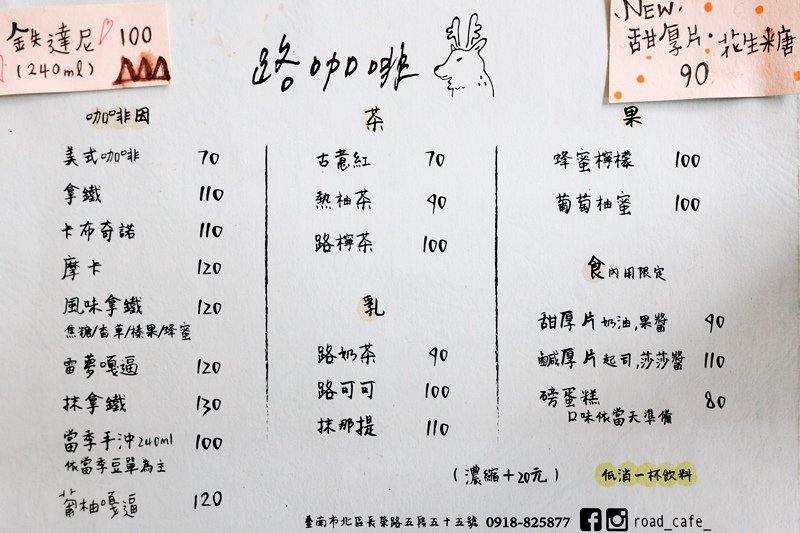 鉄達尼 100
(240ml)
路咖啡
NEW
甜厚片·花生米唐
90
咖啡因
美式咖啡 70
拿鐵 110
卡布奇諾 110
摩卡 120
風味拿鐵 120
焦糖/香草/榛果/蜂蜜
雷夢嘎逼 120
抹拿鐵 130
當季手沖240ml 100
依當季豆單為主
葡柚嘎逼 120
茶
古意紅 70
熱柚茶 90
路檸茶 100
乳
路奶茶 90
路可可 100
抹那提 110
果
蜂蜜檸檬 100
葡萄柚蜜 100
食內用限定
甜厚片奶油,果醬 90
鹹厚片起司,莎莎醬 110
磅蛋糕 80
口味依當天準備
(濃縮+20元)
低消一杯飲料
臺南市北區長榮路五段五十五號 0918-825877 road_cafe_